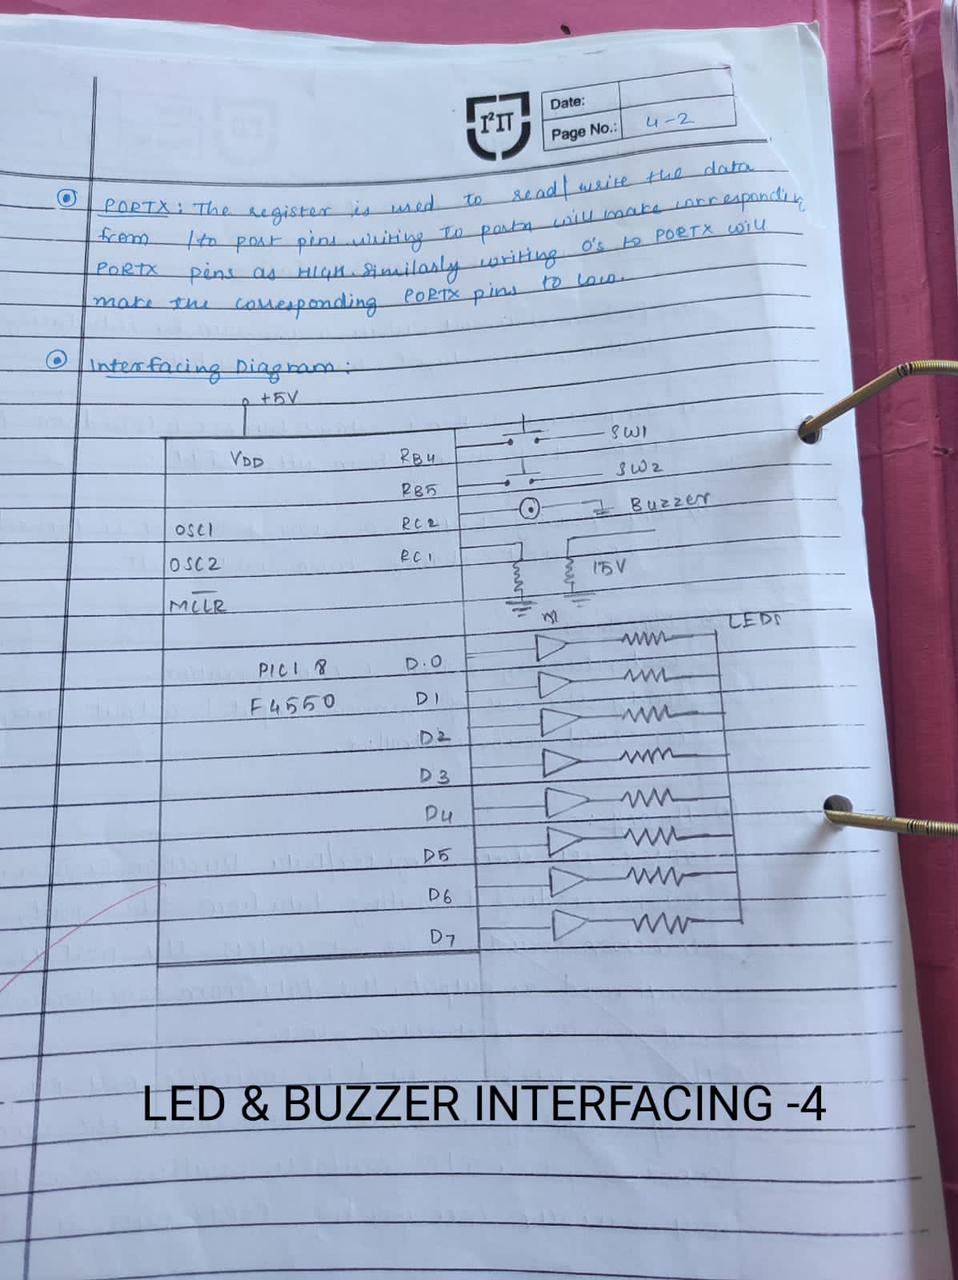 I²IT
Date:
Page No.: 4-2
PORTX: The register is used to read/write the data
from /to port pins writing To portx will make corresponding
PORTX pens as HIGH. Similarly writing 0's to PORTX will
make the corresponding PORTX pins to low.
Interfacing Diagram:
+5V
VDD
RB4
SW1
RB5
SW2
OSC1
RC2
Buzzer
OSC2
RC1
15V
MCLR
LEDs
PIC18
D.0
F4550
D1
D2
D3
D4
D5
D6
D7
LED & BUZZER INTERFACING -4